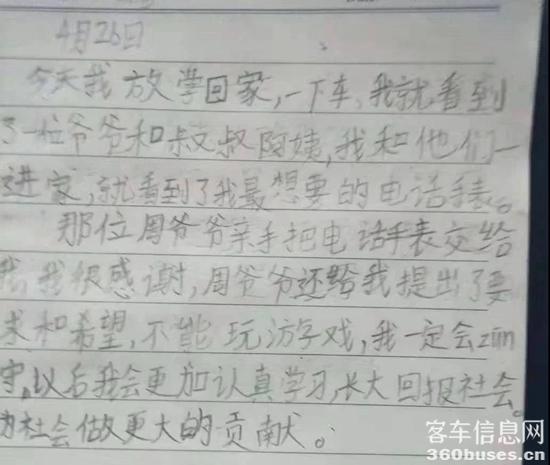 4月26日
今天我放学回家,一下车,我就看到
了一位爷爷和叔叔阿姨,我和他们一
进家,就看到了我最想要的电话手表。
那位周爷爷亲手把电话手表交给
我,我很感谢,周爷爷还给我提出了要
求和希望,不能玩游戏,我一定会zūn
守,以后我会更加认真学习,长大回报社会。
为社会做更大的贡献。
客车信息网
360buses.cn